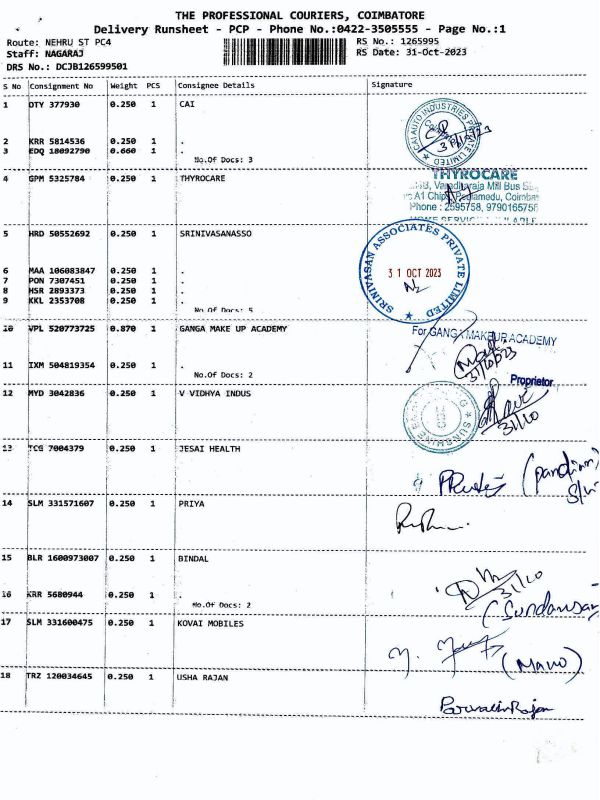 THE PROFESSIONAL COURIERS, COIMBATORE
Delivery Runsheet - PCP - Phone No.:0422-3505555 - Page No.:1
Route: NEHRU ST PC4 RS No.: 1265995
Staff: NAGARAJ RS Date: 31-Oct-2023
DRS No.: DCJB126599501
S No Consignment No Weight PCS Consignee Details Signature
1 DTY 377930 0.250 1 CAI
CAI AUTO INDUSTRIES PRIVATE LIMITED
2 KRR 5814536 0.250 1 .
3 EDQ 18092790 0.660 1 .
No.Of Docs: 3
4 GPM 5325784 0.250 1 THYROCARE
THYROCARE
Varadharaja Mill Bus
A1 Chips, Peelamedu, Coimbat
Phone : 2595758, 9790165758
5 HRD 50552692 0.250 1 SRINIVASANASSO
SRINIVASAN ASSOCIATES PRIVATE LIMITED
31 OCT 2023
6 MAA 106083847 0.250 1 .
7 PON 7307451 0.250 1 .
8 HSR 2893373 0.250 1 .
9 KKL 2353708 0.250 1 .
No.Of Docs: 5
10 VPL 520773725 0.870 1 GANGA MAKE UP ACADEMY
For GANGA MAKEUP ACADEMY
31/10/23
11 IXM 504819354 0.250 1 .
No.Of Docs: 2
Proprietor
12 MYD 3042836 0.250 1 V VIDHYA INDUS
SUNSHINE
31/10
13 TCG 7004379 0.250 1 JESAI HEALTH
(pandian)
14 SLM 331571607 0.250 1 PRIYA
15 BLR 1600973007 0.250 1 BINDAL
31/10
16 KRR 5680944 0.250 1 .
No.Of Docs: 2
17 SLM 331600475 0.250 1 KOVAI MOBILES
(Mano)
18 TRZ 120034645 0.250 1 USHA RAJAN